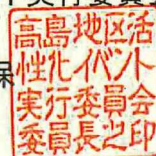 高島地区活
性化イベント
実行委員会
委員長之印